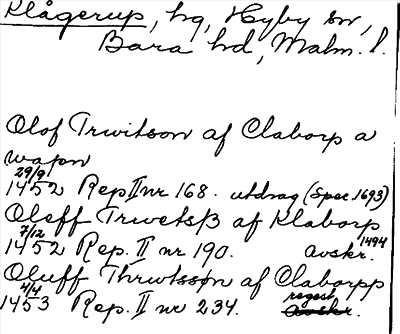 Klågerup, hg, Hyby sn,
Bara hd, Malm. l.
Olof Trwitson af Claborp a
wapn
29/9
1452 Rep II nr 168. utdrag (Spec 1693)
Oleff Trwetsβ af Klaborp
7/12 1494
1452 Rep. II nr 190. avskr.
Oluff Thrwtsson af Claborpp
4/4 regest
1453 Rep. II nr 234. avskr.